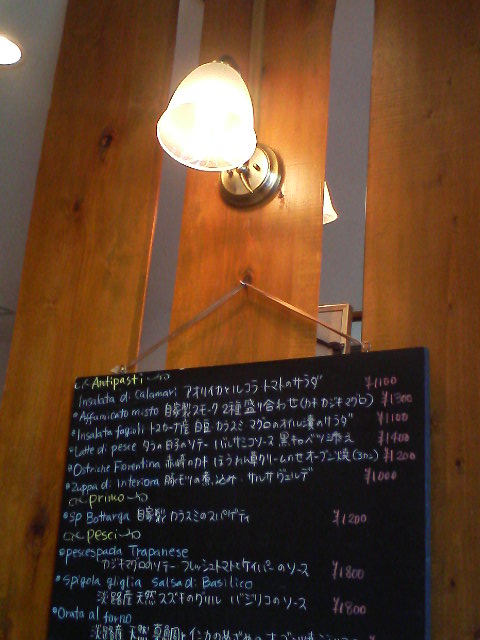 Antipasti
Insalata di Calamari アオリイカとルコラ トマトのサラダ ¥1100
Affumicato misto 自家製スモーク2種盛り合わせ(カキ カジキマグロ) ¥1300
Insalata fagioli トスカーナ産 白豆 カラスミ マグロのオイル漬のサラダ ¥1100
Latte di pesce タラの白子のソテー バルサミコソース 黒キャベツ添え ¥1400
Ostriche Fiorentina 赤崎のカキ ほうれん草クリームのせオーブン焼(3コ) ¥1200
Zuppa di Interiora 豚モツの煮込み サルサヴェルデ ¥1000
primo
SP Bottarga 自家製カラスミのスパゲティ ¥1200
pesci
pescespada Trapanese
カジキマグロのソテー フレッシュトマトとケイパーのソース ¥1800
Spigola griglia salsa di Basilico
淡路産 天然スズキのグリル バジリコのソース ¥1800
Orata al forno
淡路産 天然 真鯛と